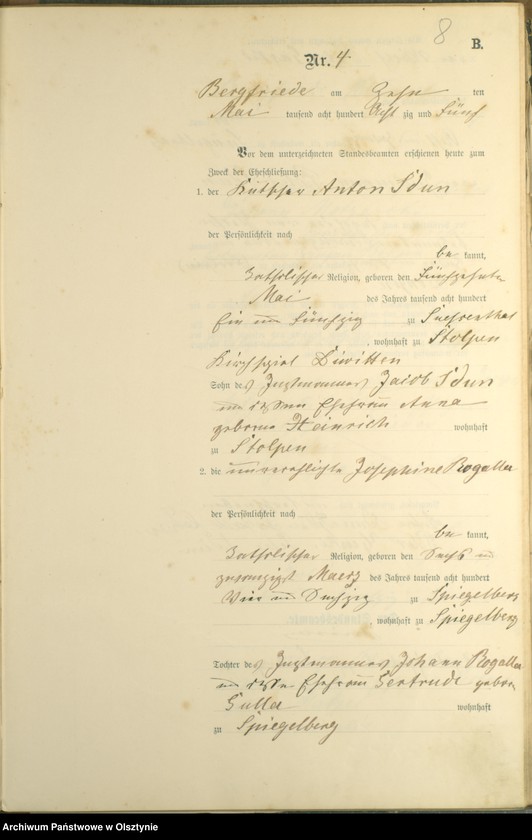 8
B.
Nr. 4
Bergfriede am Zehn ten
Mai tausend acht hundert Acht zig und Fünf
Vor dem unterzeichneten Standesbeamten erschienen heute zum
Zweck der Eheschließung:
1. der Käthner Anton Sdun
der Persönlichkeit nach
be kannt,
katholischer Religion, geboren den Fünfzehnten
Mai des Jahres tausend acht hundert
Ein und Fünfzig zu
, wohnhaft zu Stolpen
Kirchspiel Diwitten
Sohn des Instmannes Jacob Sdun
und dessen Ehefrau Anna
geborne Heinrich wohnhaft
zu Stolpen
2. die unverehelichte Josephine Rogalla
der Persönlichkeit nach
be kannt,
katholischer Religion, geboren den Sechs und
zwanzigst Maerz des Jahres tausend acht hundert
Vier und Sechzig zu Spiegelberg
, wohnhaft zu Spiegelberg
Tochter des Instmannes Johann Rogalla
und dessen Ehefrau Gertrude gebor.
wohnhaft
zu Spiegelberg
Archiwum Państwowe w Olsztynie